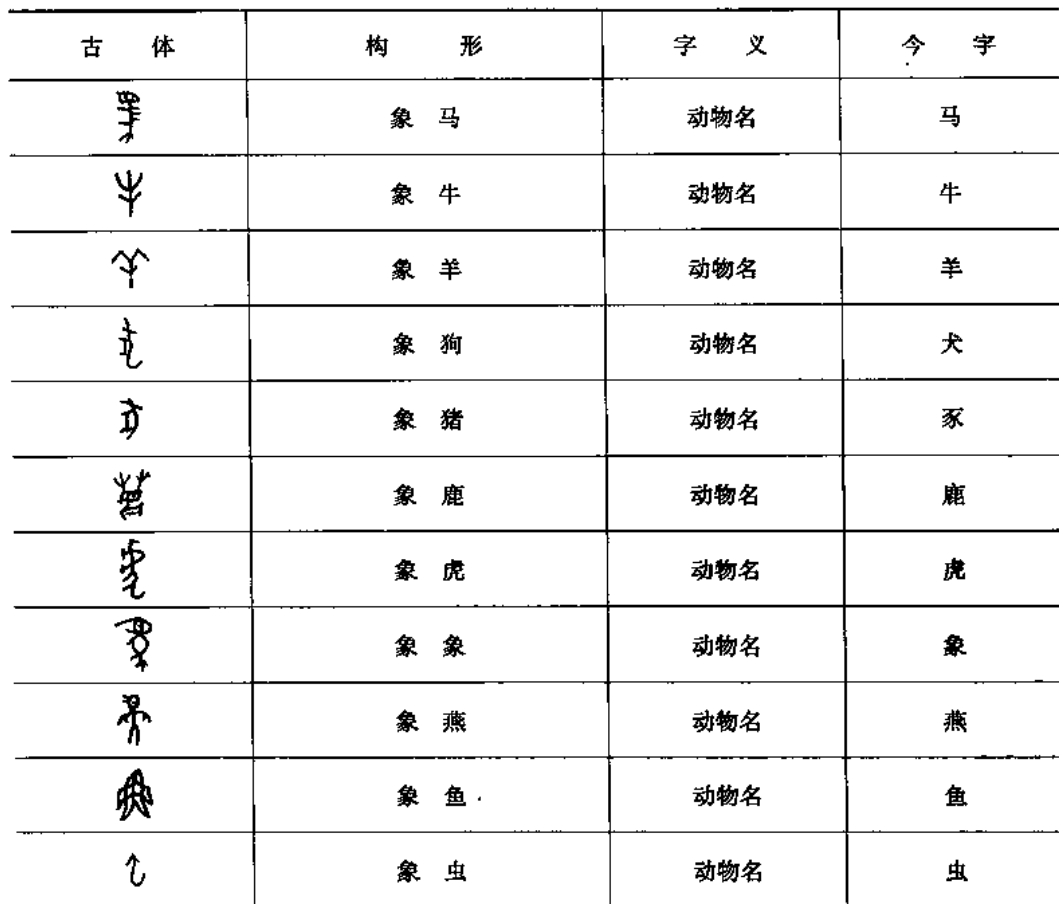 古 体 构 形 字 义 今 字
象 马 动物名 马
象 牛 动物名 牛
象 羊 动物名 羊
象 狗 动物名 犬
象 猪 动物名 豕
象 鹿 动物名 鹿
象 虎 动物名 虎
象 象 动物名 象
象 燕 动物名 燕
象 鱼 动物名 鱼
象 虫 动物名 虫